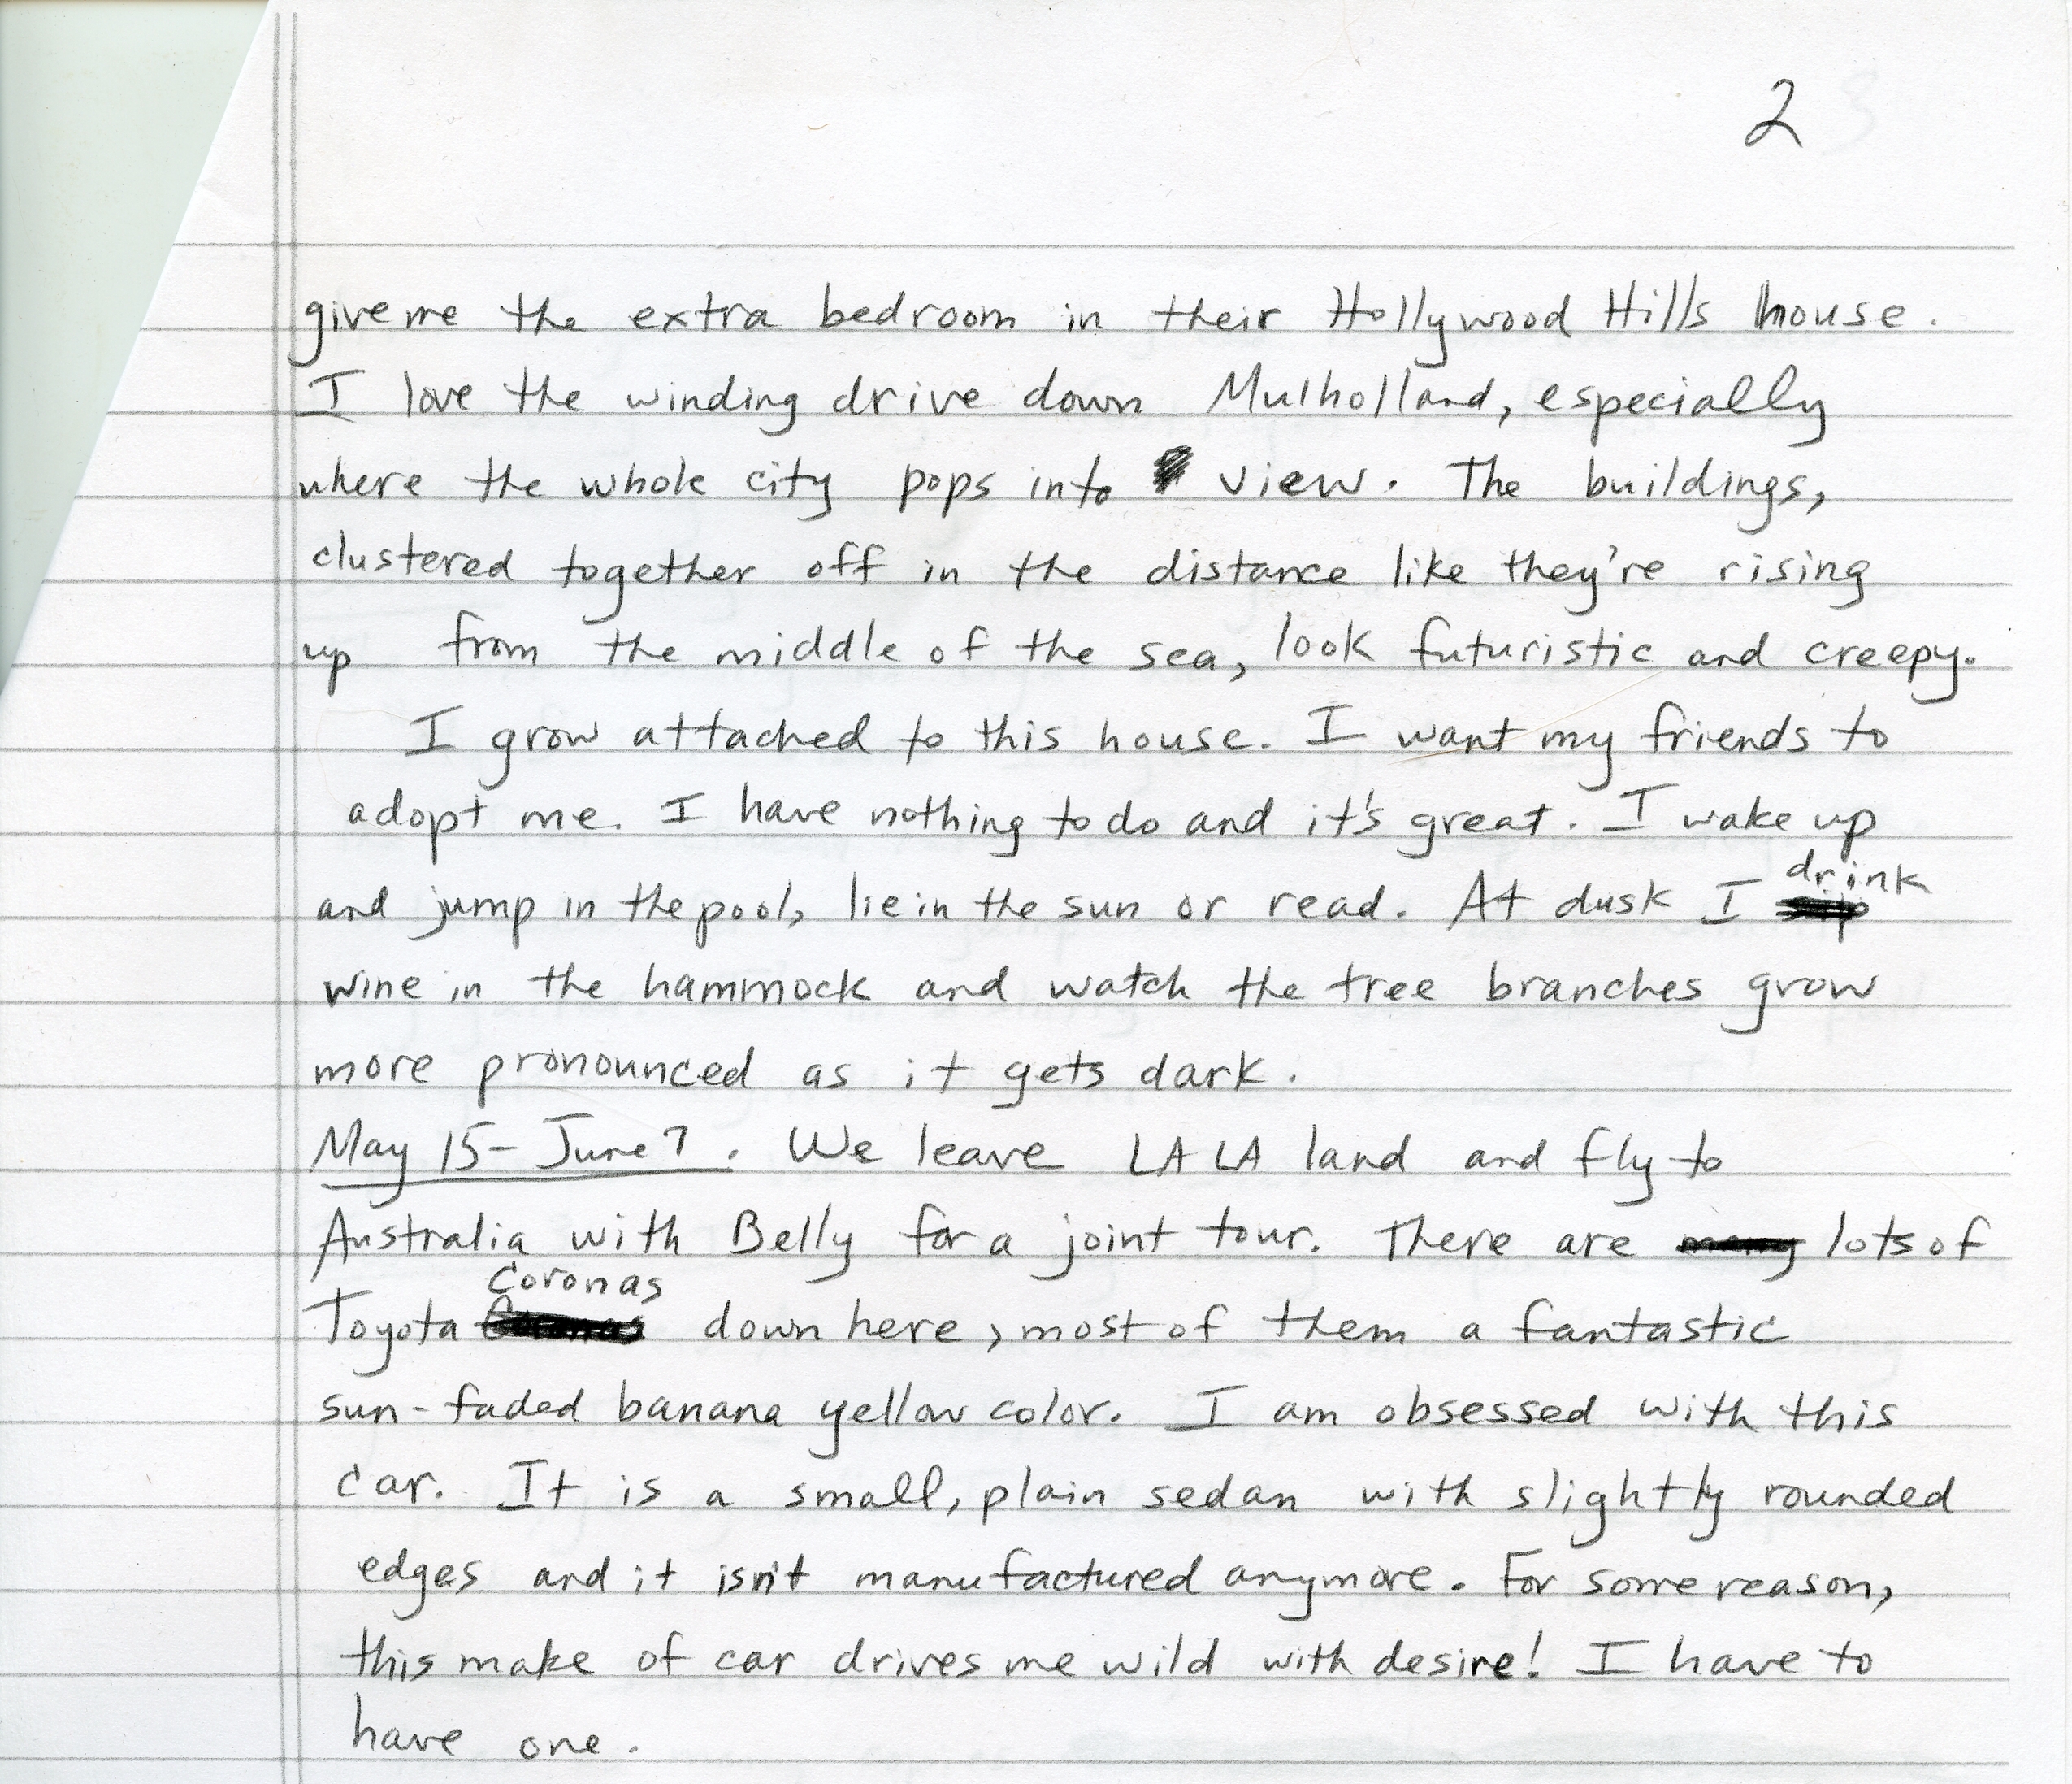 2
give me the extra bedroom in their Hollywood Hills house.
I love the winding drive down Mulholland, especially
where the whole city pops into view. The buildings,
clustered together off in the distance like they're rising
up from the middle of the sea, look futuristic and creepy.
I grow attached to this house. I want my friends to
adopt me. I have nothing to do and it's great. I wake up
and jump in the pool, lie in the sun or read. At dusk I drink
wine in the hammock and watch the tree branches grow
more pronounced as it gets dark.
May 15 - June 7. We leave LA LA land and fly to
Australia with Belly for a joint tour. There are many lots of
Toyota Coronas down here, most of them a fantastic
sun-faded banana yellow color. I am obsessed with this
car. It is a small, plain sedan with slightly rounded
edges and it isn't manufactured anymore. For some reason,
this make of car drives me wild with desire! I have to
have one.